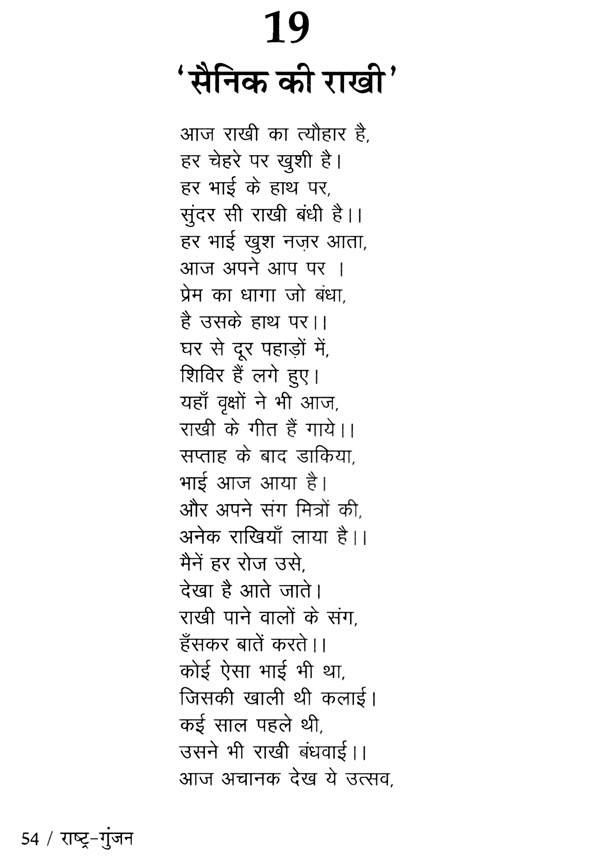 19
‘सैनिक की राखी’
आज राखी का त्यौहार है,
हर चेहरे पर खुशी है।
हर भाई के हाथ पर,
सुंदर सी राखी बंधी है।।
हर भाई खुश नज़र आता,
आज अपने आप पर ।
प्रेम का धागा जो बंधा,
है उसके हाथ पर।।
घर से दूर पहाड़ों में,
शिविर हैं लगे हुए।
यहाँ वृक्षों ने भी आज,
राखी के गीत हैं गाये।।
सप्ताह के बाद डाकिया,
भाई आज आया है।
और अपने संग मित्रों की,
अनेक राखियाँ लाया है।।
मैनें हर रोज उसे,
देखा है आते जाते।
राखी पाने वालों के संग,
हँसकर बातें करते।।
कोई ऐसा भाई भी था,
जिसकी खाली थी कलाई।
कई साल पहले थी,
उसने भी राखी बंधवाई।।
आज अचानक देख ये उत्सव,
54 / राष्ट्र-गुंजन